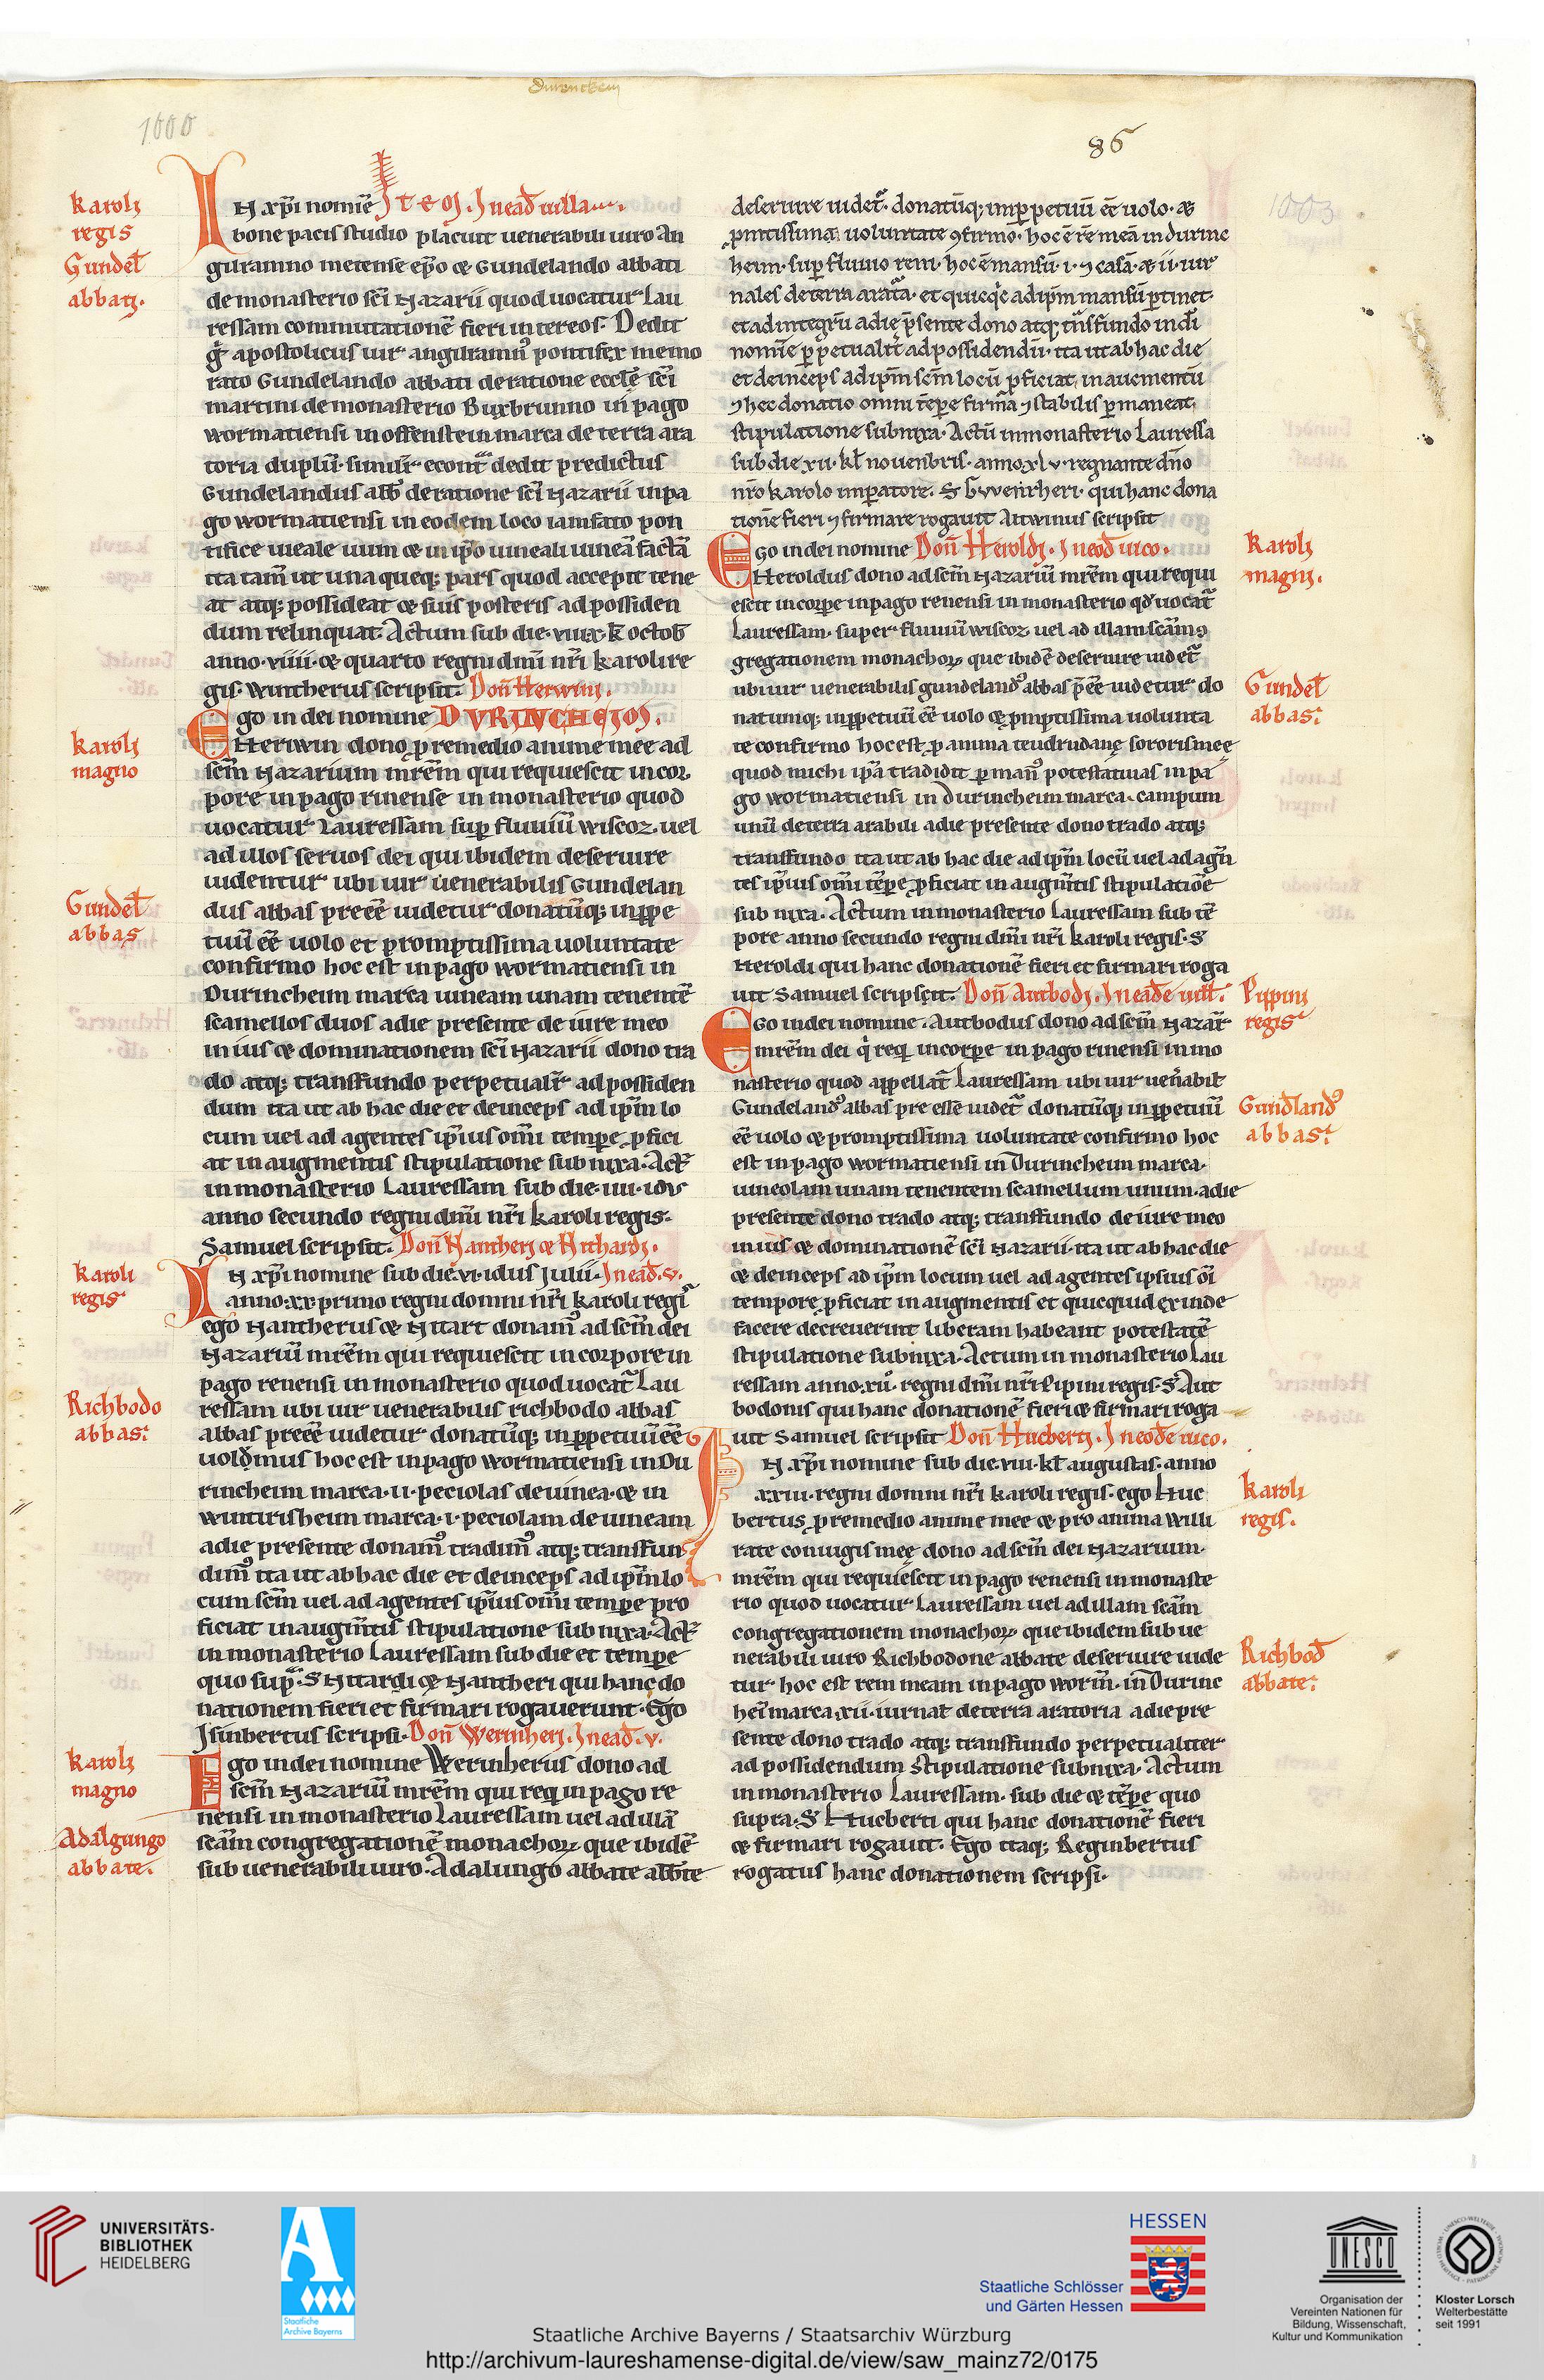 Durenckem
1000
86
1003
Karoli
regis
Gundel̄
abbatis.
IN xp̄i nomine Item. In ead̄ uilla.
bone pacis studio placuit uenerabili uiro An
guramno metense ep̄o & Gundelando abbati
de monasterio sc̄i Nazarii quod uocatur Lau
ressam commutationē fieri inter eos. Dedit
g̊ apostolicus uir angilramnꝰ pontifex memo
rato Gundelando abbati de ratione eccl̄ę sc̄i
martini de monasterio Buxbrunno in pago
wormatiensi in offenstein marca de terra ara
toria duplū. similit̄ econt̄ͣ dedit predictus
Gundelandus abb̄ de ratione sc̄i Nazarii in pa
go wormatiensi in eodem loco iamfato pon
tifice uieale uium & in ip̄o uineali uineā factā
ita tam̄ ut una queq; pars quod accepit tene
at atq; possideat & suis posteris ad possiden
dum relinquat. Actum sub die. viiix. k̄ octob̄
anno. viiii. & quarto regni dm̄i nr̄i karoli re
gis. Wintherus scripsit. Don̄ Herwini.
Karoli
magno
Ego in dei nomine DVRINCHEIM.
Heriwin dono p̱ remedio anime mee ad
sc̄m Nazarium mr̄em qui requiescit in cor
pore in pago rinense in monasterio quod
uocatur Lauressam sup̱ fluuiū wiscoz. uel
ad illos seruos dei qui ibidem deseruire
uidentur ubi uir uenerabilis Gundelan
Gundel̄
abbas
dus abbas preeē uidetur donatūq; in p̱pe
tuū eē uolo et promptissima uoluntate
confirmo hoc est in pago wormatiensi in
Durincheim marca uineam unam tenentē
scamellos duos a die presente de iure meo
in ius & dominationem sc̄i Nazarii dono tra
do atq; transfundo perpetualit̄ ad possiden
dum ita ut ab hac die et deinceps ad ip̄m lo
cum uel ad agentes ip̄ius om̄i temp̱e p̱fici
at in augmentis stipulatione subnixa. Act̄
in monasterio Lauressam sub die. iiii. idus
anno secundo regni dm̄i nr̄i karoli regis.
Samuel scripsit. Don̄ Nantheri & Hithardi.
Karoli
regis
IN xp̄i nomine sub die. vi. idus Julii. In ead̄. v.
anno. xx. primo regni domni nr̄i karoli regis
ego Nantherus & Hitart donamꝰ ad sc̄m dei
Nazariū mr̄em qui requiescit in corpore in
pago renensi in monasterio quod uocat̄ Lau
Richbodo
abbas.
ressam ubi uir uenerabilis richbodo abbas
abbas preeē uidetur donatūq; in p̱petuū eē
uolumus hoc est in pago wormatiensi in Du
rincheim marca. ii. peciolas de uinea. & in
wintirisheim marca. i. peciolam de uineam
a die presente donamꝰ tradimꝰ atq; transfun
dimꝰ ita ut ab hac die et deinceps ad ip̄m lo
cum sc̄m uel ad agentes ip̄ius om̄i temp̱e pro
ficiat in augm̄tis stipulatione subnixa. Act̄
in monasterio Lauressam sub die et temp̱e
quo supͣ. S Hitardi & Nantheri qui hanc do
nationem fieri et firmari rogauerunt. Ego
Isinbertus scripsi. Don̄ Werinheri. In ead̄. v.
Karoli
magno
Ego in dei nomine Werinherus dono ad
sc̄m Nazariū mr̄em qui req̄ in pago re
nensi in monasterio Lauressam uel ad illā
Adalgungo
abbate.
sc̄am congregationē monachoꝝ que ibidē
sub uenerabili uiro. Adalungo abbate abb̄te
deseruire uidet̄. donatūq; inp̱petuū eē uolo. &
p̱mtissima uoluntate ꝯfirmo. hoc ē rē meā in durinc
heim. sup̱ fluuio rem. hoc ē mansū. i. ⁊ casā. & ii. iur
nales de terra arataͣ. et quicq̇c ad ip̄m mansū p̱tinet.
et ad integrū a die p̄sente dono atq; t̄nsfundo in dī
nomīe p̱petualit̄ ad possidendū. ita ut ab hac die
et deīnceps ad ip̄m sc̄m locū p̱ficiat, in aucmentū
⁊ hec donatio omni tēp̱e firma ⁊ stabilis p̱maneat,
stipulatione subnixa. Actū in monasterio Lauressa
sub die xii. kl̄ nouenbris. anno xl v. regnante dn̄o
nr̄o karolo imp̱atore. S Gvverirheri. qui hanc dona
tionē fieri ⁊ firmare rogauit Aitwinus scripsit
Karoli
magni.
Ego in dei nomine Don̄ Heroldi. In eod̄ uico.
Heroldus dono ad sc̄m Nazariū mr̄em qui requi
escit in corp̱e in pago renensi in monasterio qd̄ uocat̄
Lauressam. super fluuiū wiscoz uel ad illam sc̄am ꝯ
gregationem monachoꝝ que ibidē deseruire uidet̄
Gundel̄
abbas.
ubi uir uenerabilis gundelandꝰ abbas p̄eē uidetur do
natumq; inp̱petuū eē uolo & p̱mptissima uolunta
te confirmo hoc est p̱ anima teudrudanę sororis męę
quod michi ip̄a tradidit p̱ manꝰ potestatiuas in pa
go wormatiensi in Durincheim marca. campum
unū de terra arabili a die presente dono trado atq;
transfundo ita ut ab hac die ad ip̄m locū uel ad agn̄
tes ip̄ius om̄i tēp̱e p̱ficiat in augm̄tis stipulatiōe
sub nixa. Actum in monasterio Lauressam sub tē
pore anno secundo regni dm̄i nr̄i karoli regis. S
Heroldi qui hanc donationē fieri et firmari roga
uit Samuel scripscit. Don̄ Autbodi. In eadē uill̄.
Pippini
regis
Ego in dei nomine. Autbodus dono ad sc̄m Nazar̄
mr̄em dei q̇ req̄ in corp̱e in pago rinensi in mo
nasterio quod appellat̄ Lauressam ubi uir uen̄abil̄
Gundlandꝰ
abbas.
Gundelandꝰ abbas pre esse uidet̄ donatūq; in p̱petuū
eē uolo & promptissima uoluntate confirmo hoc
est in pago wormatiensi in Durincheim marca.
uineolam unam tenentem scamellum unum. a die
presente dono trado atq; transfundo de iure meo
in ius & dominationē sc̄i Nazarii. ita ut ab hac die
& deinceps ad ip̄m locum uel ad agentes ipsius oī
tempore p̱ficiat in augmentis et quicquid exinde
facere decreuerint liberam habeant potestatē
stipulatione subnixa. Actum in monasterio Lau
ressam anno. xii. regni dm̄i nr̄i Pipini regis. S Aut
bodonis qui hanc donationē fieri & firmari roga
uit Samuel scripsit Don̄ Hucberti. In eodē uico.
IN xp̄i nomine sub die. viii. kl̄ augustas. anno
Karoli
regis.
xxiii. regni domni nr̄i karoli regis. ego Huc
bertus p̱ remedio anime mee & pro anima willi
rate coniugis meę dono ad sc̄m dei Nazarium.
mr̄em qui requiescit in pago renensi in monaste
rio quod uocatur Lauressam uel ad illam sc̄am
congregationem monachoꝝ que ibidem sub ue
Richbod̄
abbate.
nerabili uiro Richbodone abbate deseruire uide
tur hoc est rem meam in pago worm̄. in Durinc
hei marca. xii. iurnat̄ de terra aratoria a die pre
sente dono trado atq; transfundo perpetualiter
ad possidendum stipulatione subnixa. Actum
in monasterio Lauressam. sub die & tēp̱e quo
supra. S Hucberti qui hanc donationē fieri
& firmari rogauit. Ego itaq; Reginbertus
rogatus hanc donationem scripsi.
UNIVERSITÄTS-
BIBLIOTHEK
HEIDELBERG
A
Staatliche
Archive Bayerns
HESSEN
Staatliche Schlösser
und Gärten Hessen
UNESCO
Organisation der
Vereinten Nationen für
Bildung, Wissenschaft,
Kultur und Kommunikation
Kloster Lorsch
Welterbestätte
seit 1991
Staatliche Archive Bayerns / Staatsarchiv Würzburg
http://archivum-laureshamense-digital.de/view/saw_mainz72/0175